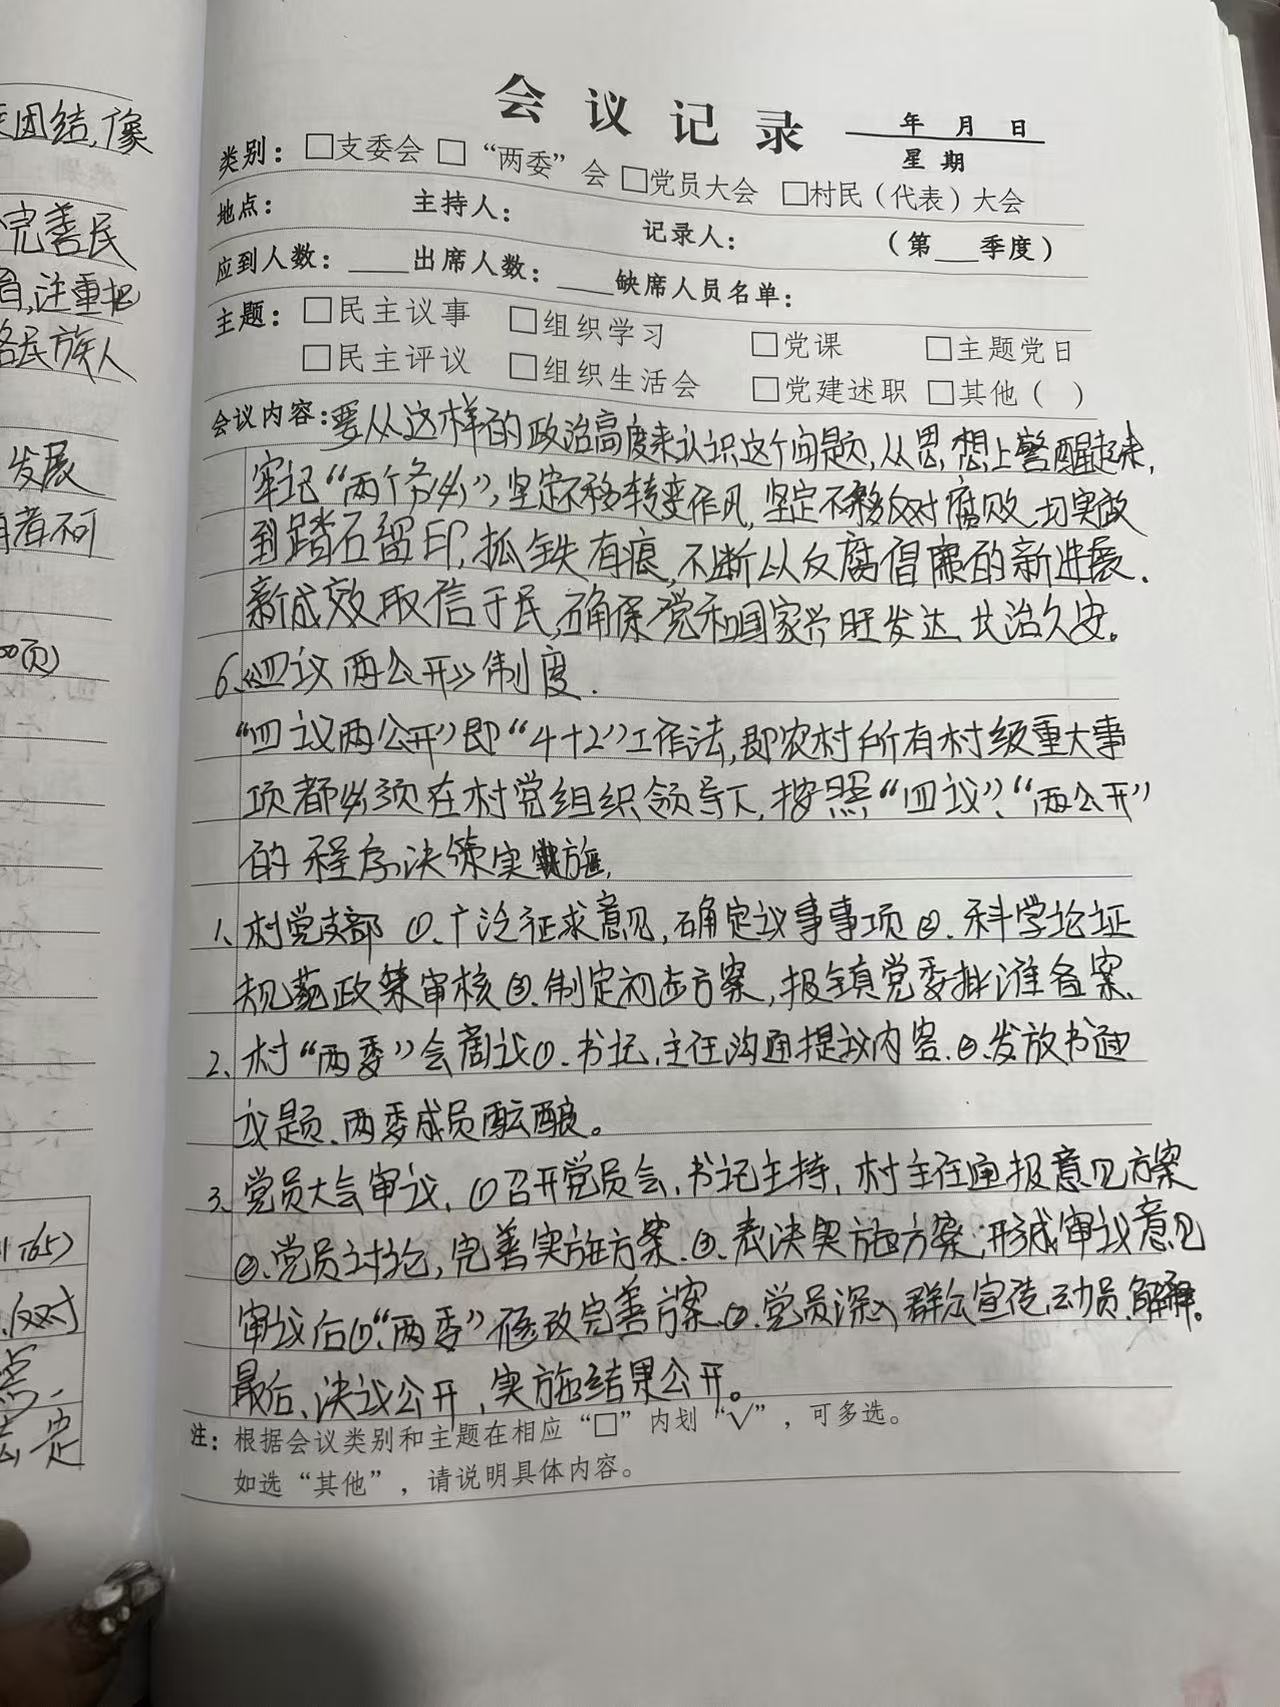 团结,像
完善民
注重把
各民族人
发展
有者不可
00页)
165)
反对
会议记录
年 月 日
星 期
类别：□支委会 □“两委”会 □党员大会 □村民（代表）大会
地点： 主持人： 记录人： （第___季度）
应到人数：____出席人数：____缺席人员名单：
主题：□民主议事 □组织学习 □党课 □主题党日
□民主评议 □组织生活会 □党建述职 □其他（ ）
会议内容:要从这样的政治高度来认识这个问题,从思想上警醒起来,
牢记“两个务必”,坚定不移转变作风,坚定不移反对腐败,切实做
到踏石留印,抓铁有痕,不断以反腐倡廉的新进展.
新成效取信于民,确保党和国家兴旺发达,长治久安。
6、《四议两公开》制度.
“四议两公开”即“4+2”工作法,即农村所有村级重大事
项都必须在村党组织领导下,按照“四议”、“两公开”
的程序决策实施,
1、村党支部 ①、广泛征求意见,确定议事事项②、科学论证
规范政策审核③、制定初步方案,报镇党委批准备案、
2、村“两委”会商议①、书记,主任沟通提议内容.②、发放书面
议题、两委成员酝酿。
3、党员大会审议, ①召开党员会,书记主持,村主任通报意见方案
②、党员讨论,完善实施方案.③、表决实施方案,形成审议意见
审议后①“两委”修改完善方案.②、党员深入群众宣传,动员,解释。
最后、决议公开,实施结果公开。
注：根据会议类别和主题在相应“□”内划“√”，可多选。
如选“其他”，请说明具体内容。